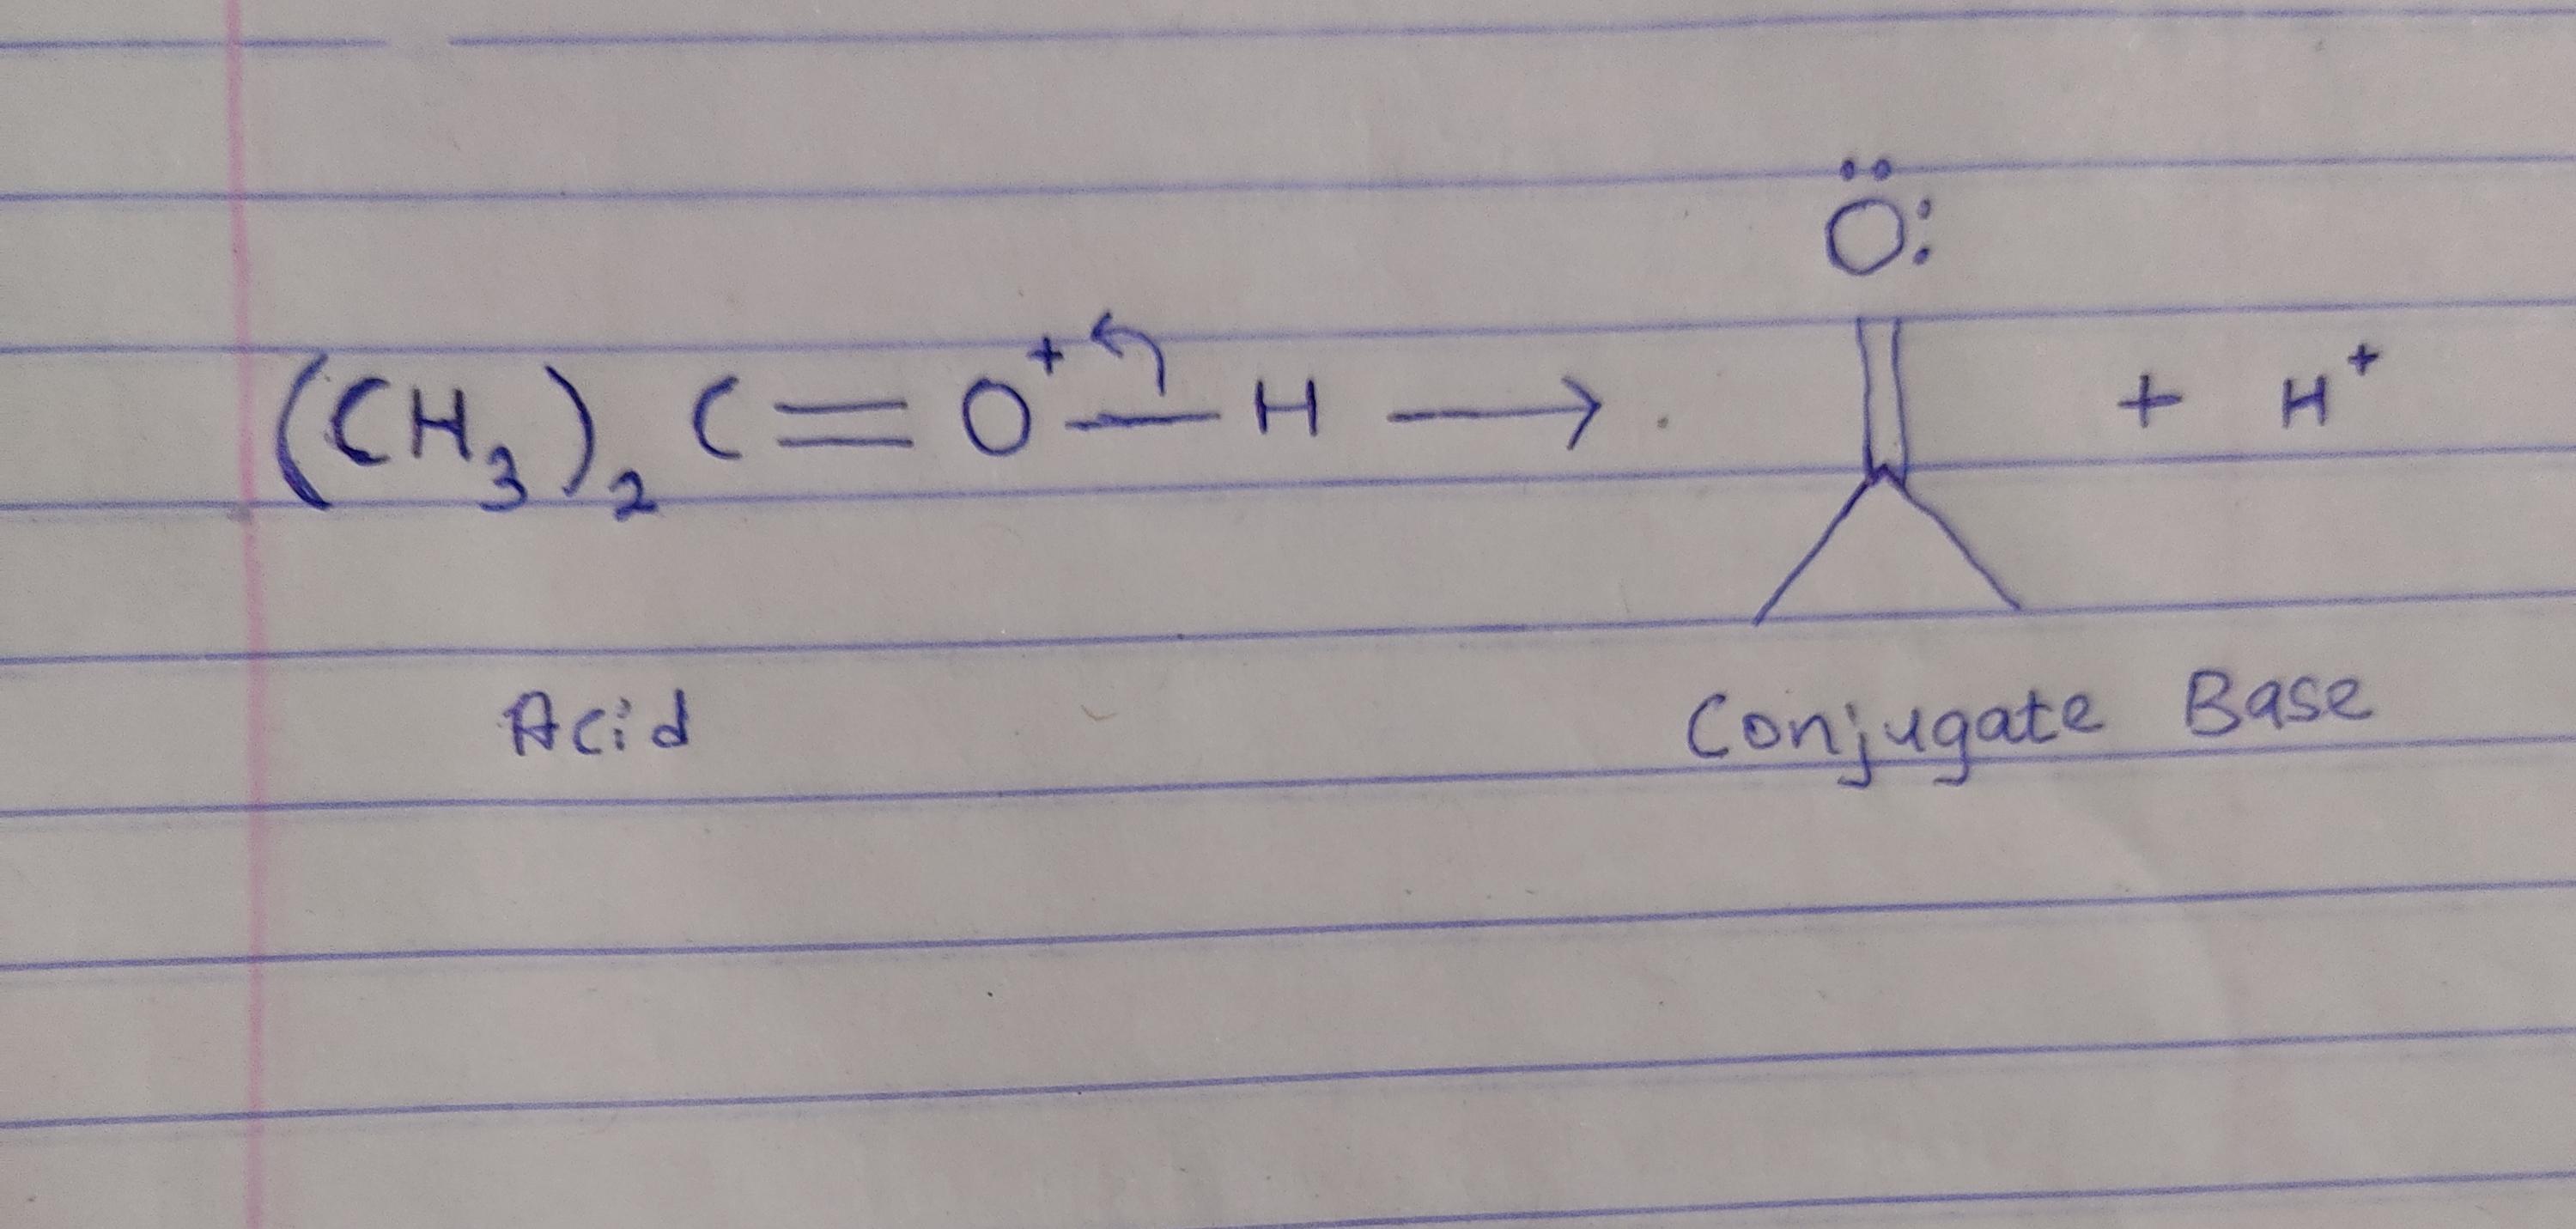 Ö:
(CH₃)₂ C = O⁺ — H ⟶ + H⁺
Acid Conjugate Base